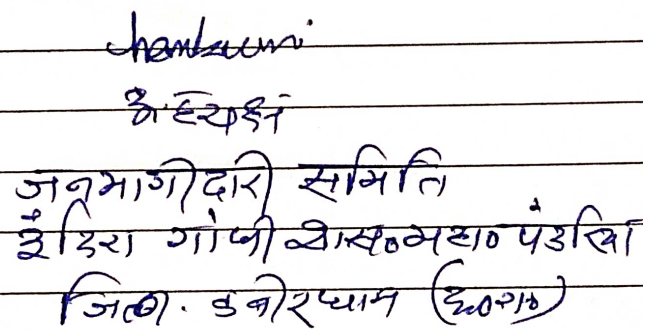 अध्यक्ष
जनभागीदारी समिति
इंदिरा गांधी शास०महा० पंडरिया
जिला. कबीरधाम (छ०ग०)